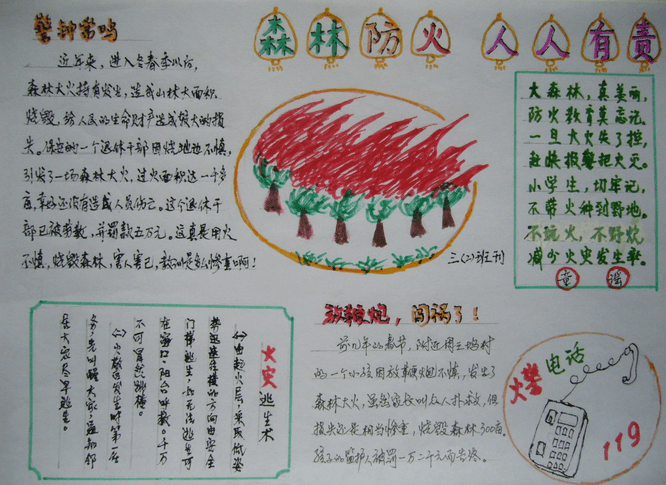 森林防火 人人有责
警钟常鸣
近年来，进入冬春季以后，
森林大火持有发生，造成山林大面积
烧毁，给人民的生命财产造成很大的损
失。保定的一个退休干部因烧地边不慎，
引发了一场森林大火，过火面积达一千多
亩，幸好还没有造成人员伤亡。这个退休干
部已被拘救，并罚款五万元，这真是用火
不慎，烧毁森林，害人害己，教训是多么惨重啊！
三(2)班王刊
大森林，真美丽，
防火教育莫忘记，
一旦大火失了控，
赶快报警把火灭。
小学生，切牢记，
不带火种到野地。
不玩火，不野炊，
减少火灾发生率。
童谣
火灾逃生术
(一)由起火层，采取低姿
势迅速往楼的方向由安全
门、梯逃生，如无法逃生可
在窗口、阳台呼救。千万
不可冒然跳楼。
(二)火
放鞭炮，闯祸了！
前几年的春节，附近
的一个小孩因放鞭炮不慎，发生了
森林大火，虽然家长叫众人扑救，但
损失还是相当惨重，烧毁森林300亩，
孩子的监护人被罚一万二千元而告终。
火警电话
119